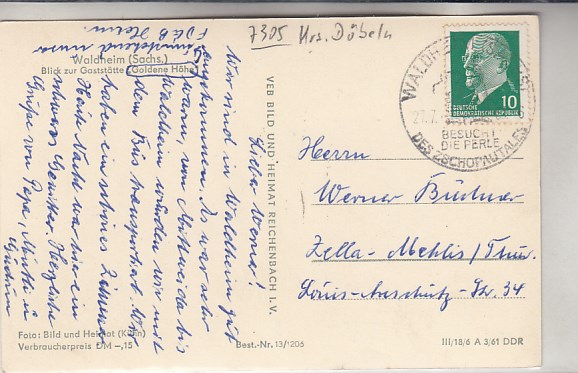 7305 Krs. Döbeln
Waldheim (Sachs.)
Blick zur Gaststätte „Goldene Höhe"
Lieber Werner!
Wir sind in Waldheim gut
angekommen. Es war sehr
warm, von Mittweida bis
Waldheim wurden wir mit
dem Bus transportiert. Wir
haben ein schönes Zimmer.
Heute Nacht war hier ein
schweres Gewitter. Herzliche
Grüße von Papa, Mutti u.
Gudrun
umstehend unser
FDGB Heim.
VEB BILD UND HEIMAT REICHENBACH I. V.
WALDH
DEUTSCHE
DEMOKRATISCHE REPUBLIK
10
BESUCHT
DIE PERLE
DES ZSCHOPAUTALES
Herrn
Werner Büchner
Zella-Mehlis/Thür.
Louis-Anschütz-Str. 34
Foto: Bild und Heimat (Kühn)
Verbraucherpreis DM –,15
Best.-Nr. 13/1206
III/18/6 A 3/61 DDR